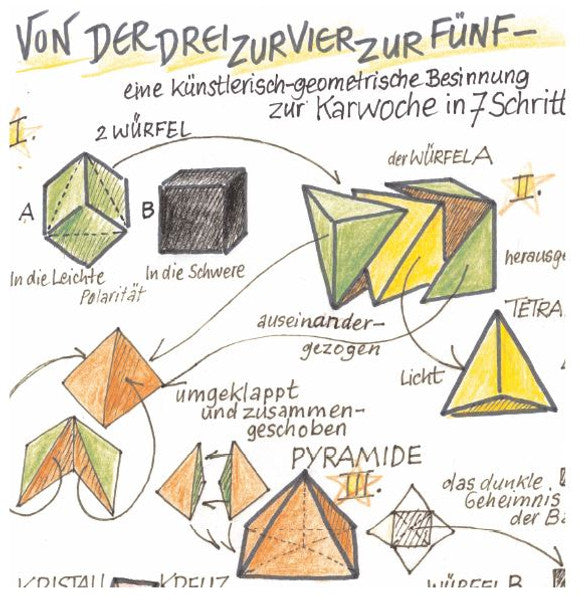 VON DER DREI ZUR VIER ZUR FÜNF–
eine künstlerisch-geometrische Besinnung
zur Karwoche in 7 Schritt
I.
2 WÜRFEL
der WÜRFEL A
II.
A
B
In die Leichte
Polarität
In die Schwere
herausge
TETRA
auseinander-
gezogen
Licht
umgeklappt
und zusammen-
geschoben
PYRAMIDE
III.
das dunkle
Geheimnis
der Ba
KRISTALL
KREUZ
WÜRFEL B